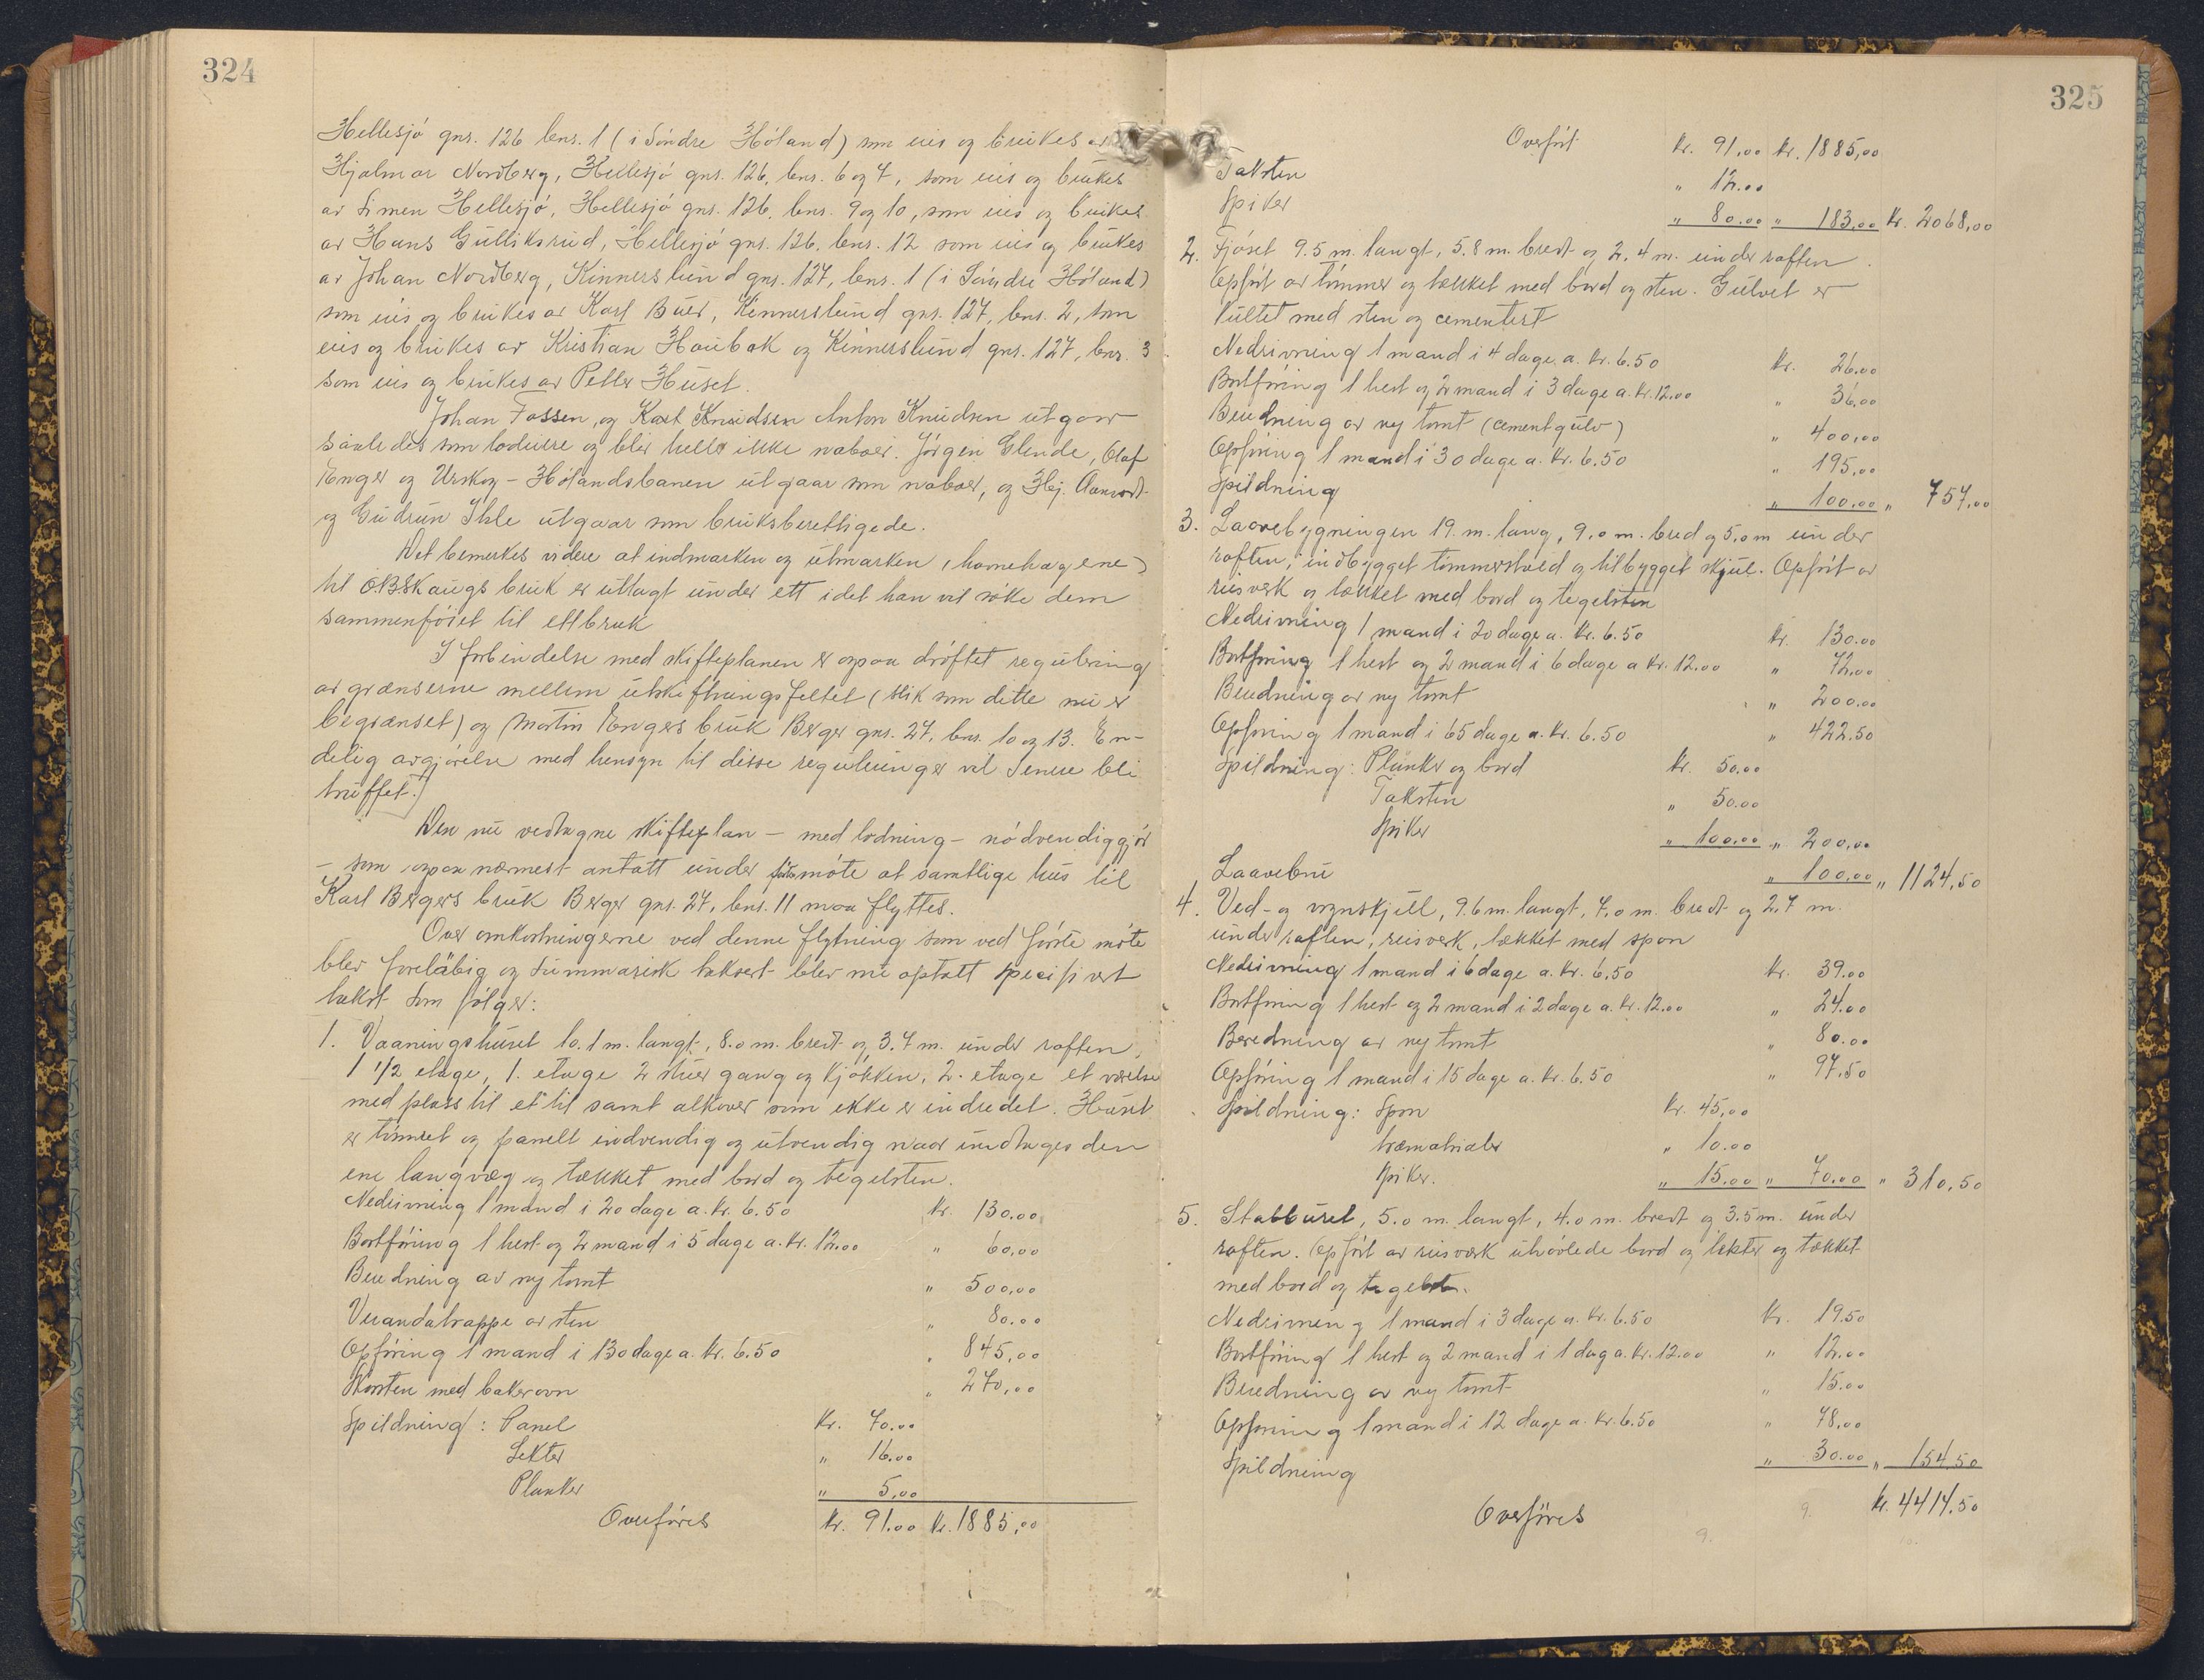 324
Hellesjö gnr. 126 bnr. 1 (i Söndre Höland) som eies og brukes av
Hjalmar Nordberg, Hellesjö gnr. 126, bnr. 6 og 7, som eies og brukes
av Simen Hellesjö, Hellesjö gnr. 126, bnr. 9 og 10, som eies og brukes
av Hans Gulliksrud, Hellesjö gnr. 126, bnr. 12 som eies og brukes
av Johan Nordberg, Kinnerslund gnr. 127, bnr. 1 (i Söndre Höland)
som eies og brukes av Karl Buer, Kinnerslund gnr. 127, bnr. 2, som
eies og brukes av Kristian Haubak og Kinnerslund gnr. 127, bnr. 3
som eies og brukes av Petter Huset.
Johan Fossen, og Karl Knudsen Anton Knudsen utgaar
saaledes som lodeiere og blir heller ikke naboer. Jörgen Glende, Olaf
Enger og Urskog-Hölandsbanen utgaar som naboer, og Hj. Aamodt
og Gudrun Ihle utgaar som bruksberettigede.
Det bemerkes videre at indmarken og utmarken (havnehagene)
til O.B. Skaugs bruk er uttagt under ett idet han vil söke dem
sammenföiet til ett bruk
I forbindelse med skifteplanen er ogsaa dröftet regulering
av grænserne mellem utskiftningsfeltet (slik som dette nu er
begrænset) og Martin Engers bruk Berger gnr. 27, bnr. 10 og 13. En-
delig avgjörelse med hensyn til disse reguleringer vil senere bli
truffet.
Den nu vedtagne skifteplan - med lodning - nödvendiggjör
- som ogsaa nærmest antatt under första möte at samtlige hus til
Karl Bergers bruk Berger gnr. 27, bnr. 11 maa flyttes.
Over omkostningerne ved denne flytning som ved förste möte
blev foreläbig og summarisk taksert blev nu optatt specifisert
takst som fölger:
1. Vaaningshuset 10.1 m. langt, 8.0 m. bredt og 3.7 m. under raften,
1 1/2 etage, 1. etage 2 stuer gang og kjökken, 2. etage et værelse
med plass til et til samt alkover som ikke er indredet. Huset
er tömret og panelt indvendig og utvendig naar undtages den
ene langvæg og tækket med bord og tegelsten.
Nedrivning 1 mand i 20 dage a. Kr. 6.50 Kr. 130.00
Bortföring 1 hest og 2 mand i 5 dage a. Kr. 12.00 " 60,00
Beredning av ny tomt " 500,00
Verandatrappe av sten " 80.00
Opföring 1 mand i 130 dage a. Kr. 6.50 " 845,00
Skorsten med bakerovn " 270,00
Spildning: Panel Kr. 70.00
Lekter " 16.00
Planker " 5,00
Overföres Kr. 91.00 Kr. 1885,00
325
Overfört Kr. 91,00 Kr. 1885,00
Taksten " 12.00
Spiker " 80.00 " 183,00 Kr. 2068,00
2. Fjöset 9.5 m. langt, 5.8 m. bredt og 2.4 m. under raften
Opfört av tömmer og tækket med bord og sten. Gulvet er
kultet med sten og cementert
Nedrivning 1 mand i 4 dage a. Kr. 6.50 Kr. 26.00
Bortföring 1 hest og 2 mand i 3 dage a. Kr. 12.00 " 36,00
Beredning av ny tomt (cementgulv) " 400,00
Opföring 1 mand i 30 dage a. Kr. 6.50 " 195,00
Spildning " 100,00 " 757,00
3. Laavebygningen 19. m. lang, 9.0 m. bred og 5.0 m under
raften, indbygget tömmerstald og tilbygget skjul. Opfört av
reisverk og tækket med bord og tegelsten
Nedrivning 1 mand i 20 dage a. Kr. 6.50 Kr. 130.00
Bortföring 1 hest og 2 mand i 6 dage a Kr. 12.00 " 72,00
Beredning av ny tomt " 200.00
Opföring 1 mand i 65 dage a. Kr. 6.50 " 422.50
Spildning: Planker og bord Kr. 50.00
Taksten " 50.00
Spiker " 100.00 " 200,00
Laavebru " 100,00 " 1124,50
4. Ved- og vognskjell, 9.6 m. langt, 7.0 m. bredt og 2.7 m.
under raften, reisverk, tækket med spon
Nedrivning 1 mand i 6 dage a. Kr. 6.50 Kr. 39.00
Bortföring 1 hest og 2 mand i 2 dage a. Kr. 12.00 " 24.00
Beredning av ny tomt " 80.00
Opföring 1 mand i 15 dage a. Kr. 6.50 " 97.50
Spildning: Spon Kr. 45,00
træmatrialer " 10.00
Spiker. " 15.00 " 70.00 " 310,50
5. Stabburet, 5.0 m. langt, 4.0 m. bredt og 3.5 m. under
raften. Opfört av reisværk uhövlede bord og lekter og tækket
med bord og tegelst.
Nedrivning 1 mand i 3 dage a. Kr. 6.50 Kr. 19.50
Bortföring 1 hest og 2 mand i 1 dag a. Kr. 12.00 " 12.00
Beredning av ny tomt " 15.00
Opföring 1 mand i 12 dage a. Kr. 6.50 " 78,00
Spildning " 30.00 " 154.50
Overföres Kr. 4414.50